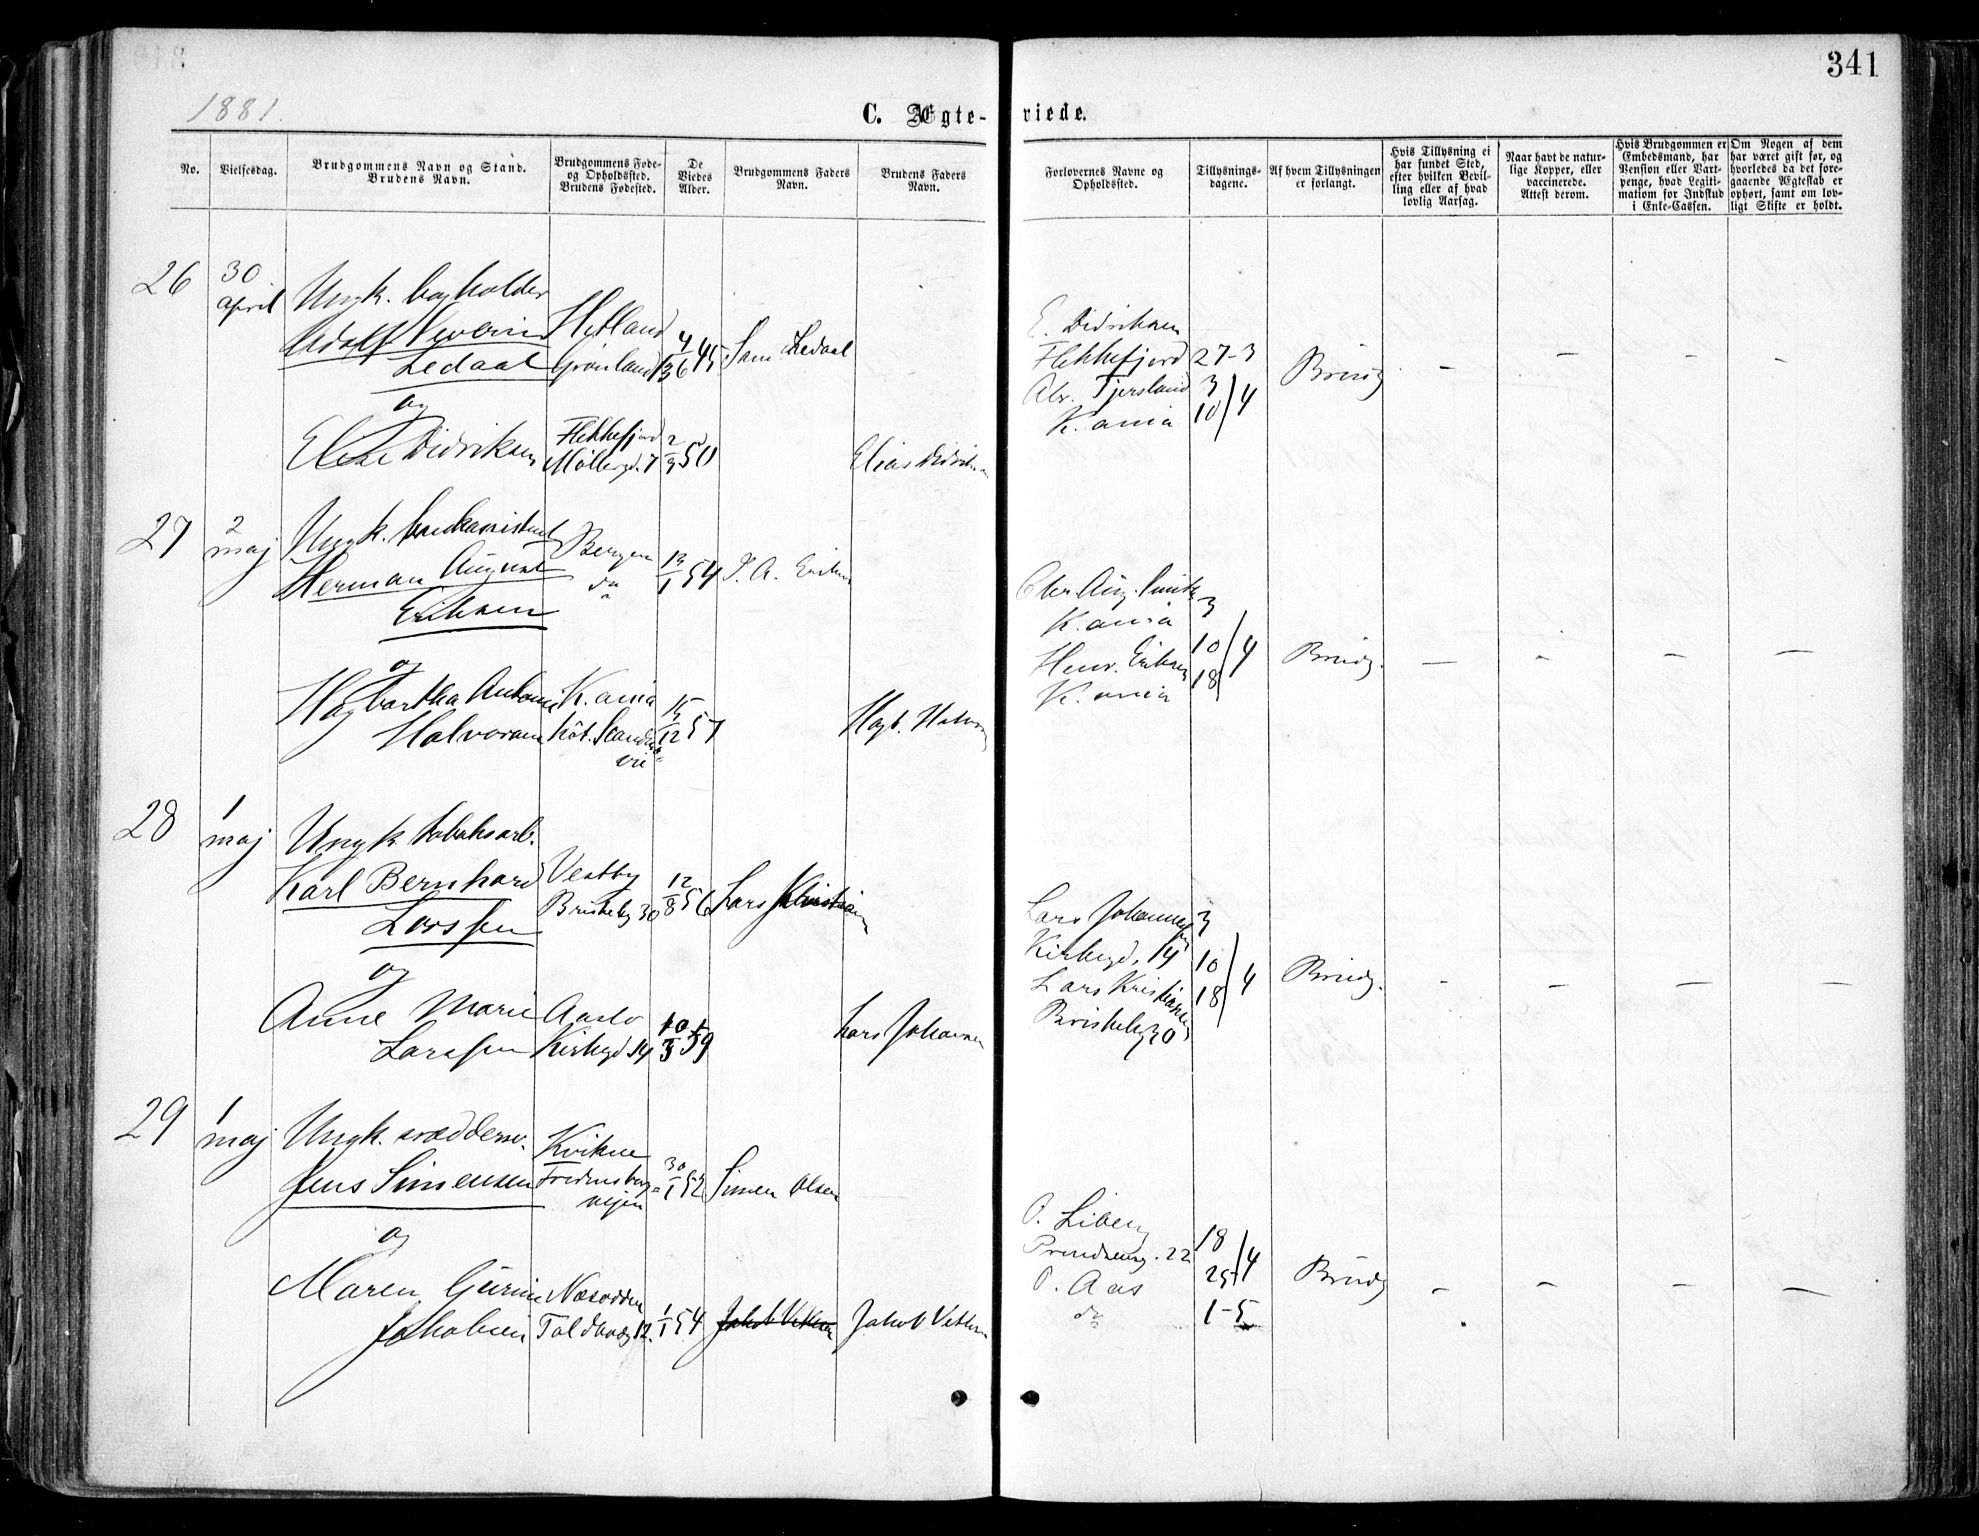 341
1881.
C. Ægte-
viede.
No.
Vielsesdag.
Brudgommens Navn og Stand.
Brudens Navn.
Brudgommens Føde-
og Opholdssted.
Brudens Fødested.
De
Viedes
Alder.
Brudgommens Faders
Navn.
Brudens Faders
Navn.
Forlovernes Navne og
Opholdssted.
Tillysnings-
dagene.
Af hvem Tillysningen
er forlangt.
Hvis Tillysning ei
har fundet Sted,
efter hvilken Bevil-
ling eller af hvad
lovlig Aarsag.
Naar havt de natur-
lige Kopper, eller
vaccinerede.
Attest derom.
Hvis Brudgommen er
Embedsmand, har
Pension eller Vart-
penge, hvad Legiti-
mation for Indskud
i Enke-Cassen.
Om Nogen af dem
har været gift før, og
hvorledes da det fore-
gaaende Ægteskab er
ophørt, samt om lov-
ligt Skifte er holdt.
26
30
april
Ungk. bogholder
Adolf Severin
Ledaal
og
Eline Didriksen
Hetland
Grønland 13
4/6 45
Flekkefjord
Møllergd. 7
2/9 50
Ledaal
Elias
E. Didriksen
Flekkefjord
Tjersland
K.ania
27-3
3
10/4
Brudg
- - - -
27
2
maj
Ungk.
Herman August
Eriksen
og
Hagbartha
Halvorsen
Bergen
do
13/1 54
K.ania
Hôt. Scandina
vie
15/12 57
J. A. Eriksen
Hagb. Halvorsen
Aug.
K.ania
Henr. Eriksen
K.ania
3
10/4
18
Brudg.
- - - -
28
1
maj
Ungk tobaksarb.
Karl Bernhard
Larssen
og
Anne Marie
Larssen
Vestby
Briskeby 30
12/8 56
Kirkegd 14
59
Lars Kristiansen
Lars Johannesen
Lars Johannessen
Kirkegd. 14
Lars Kristiansen
Briskeby 30
3
10/4
18
Brudg.
- - - -
29
1
maj
Ungk. skræddersv.
Jens Simensen
og
Maren Gurine
Jakobsen
Kvikne
Fredensborg=
vejen
30/1 52
Næsodden
Toldbodg 12.
1/1 54
Simen Olsen
Jakob
Jakob
O. Liberg
Prindsensg. 22
O. Aas
do
18/4
25
1-5
Brudg
- - - -